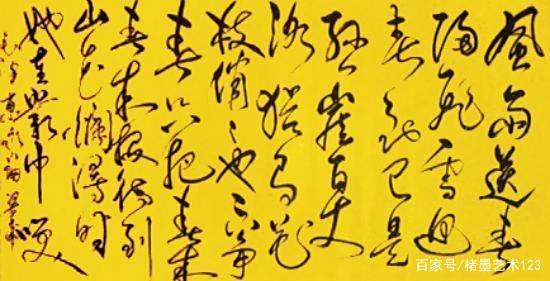 风雨送春
归飞雪迎
春到已是
悬崖百丈
冰犹有花
枝俏〻也不争
春只把春来
春来报待到
山花烂漫时
她在丛中笑
百家号/楮墨艺术123